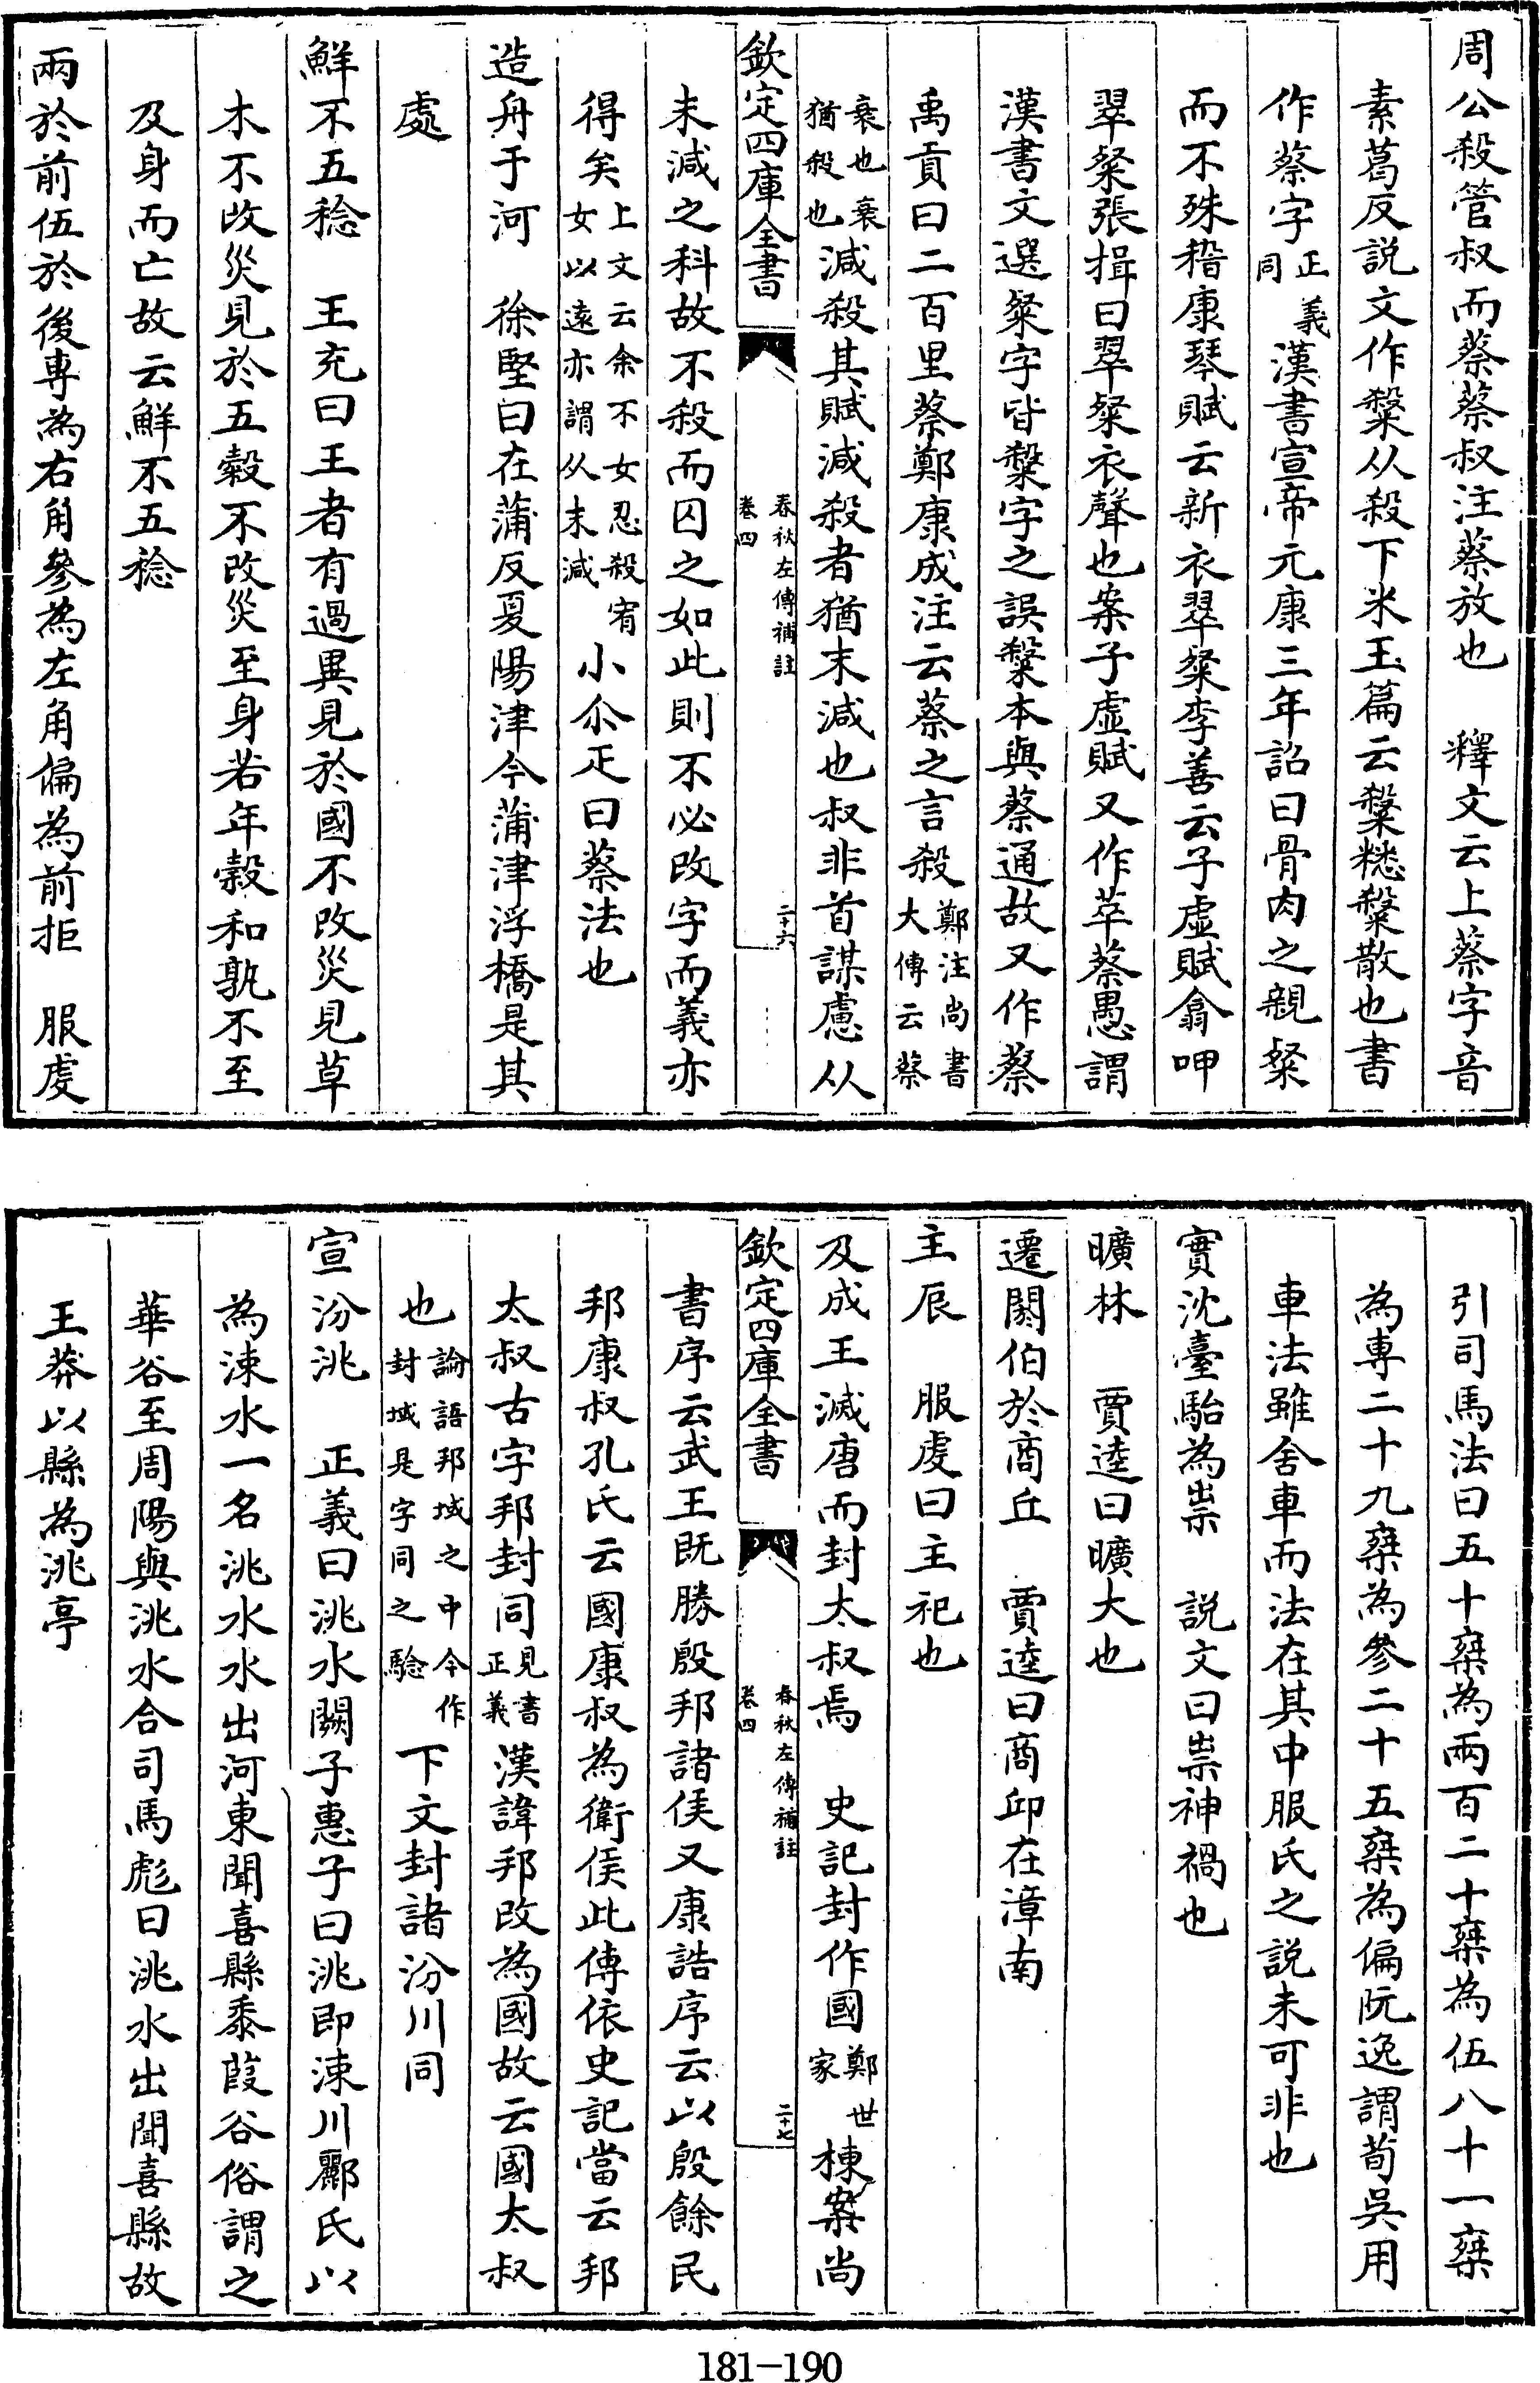 周公殺管叔而蔡蔡叔注蔡放也　釋文云上蔡字音
素葛反説文作𥻦从殺下米玉篇云𥻦𥻦散也書
作蔡字正義同漢書宣帝元康三年詔曰骨肉之親粲
而不殊稽康琴賦云新衣翠粲李善云子虛賦翕呷
翠粲張揖曰翠粲衣聲也案子虛賦又作萃蔡愚謂
漢書文選粲字皆𥻦字之誤𥻦本與蔡通故又作蔡
禹貢曰二百里蔡鄭康成注云蔡之言殺鄭注尚書大傳云蔡
衰也衰猶殺也減殺其賦減殺者猶末減也叔非首謀慮从
欽定四庫全書
春秋左傳補註
卷四
二十六
末減之科故不殺而囚之如此則不必改字而義亦
得矣上文云余不女忍殺宥女以遠亦謂从末減小尒疋曰蔡法也
造舟于河　徐堅曰在蒲反夏陽津今蒲津浮橋是其
處
鮮不五稔　王充曰王者有過異見於國不改災見草
木不改災見於五穀不改災至身若年穀和孰不至
及身而亡故云鮮不五稔
兩於前伍於後專為右角參為左角偏為前拒　服虔
引司馬法曰五十椉為兩百二十椉為伍八十一椉
為專二十九椉為參二十五椉為偏阮逸謂荀吳用
車法雖舍車而法在其中服氏之説未可非也
實沈臺駘為祟　説文曰祟神禍也
曠林　賈逵曰曠大也
遷閼伯於商丘　賈逵曰商邱在漳南
主辰　服虔曰主祀也
及成王滅唐而封太叔焉　史記封作國鄭世家棟案尚
欽定四庫全書
春秋左傳補註
卷四
二十七
書序云武王既勝殷邦諸侯又康誥序云以殷餘民
邦康叔孔氏云國康叔為衛侯此傳依史記當云邦
太叔古字邦封同見書正義漢諱邦改為國故云國太叔
也論語邦域之中今作封域是字同之驗下文封諸汾川同
宣汾洮　正義曰洮水闕子惠子曰洮即涑川酈氏以
為涑水一名洮水水出河東聞喜縣黍葭谷俗謂之
華谷至周陽與洮水合司馬彪曰洮水出聞喜縣故
王莽以縣為洮亭
181-190